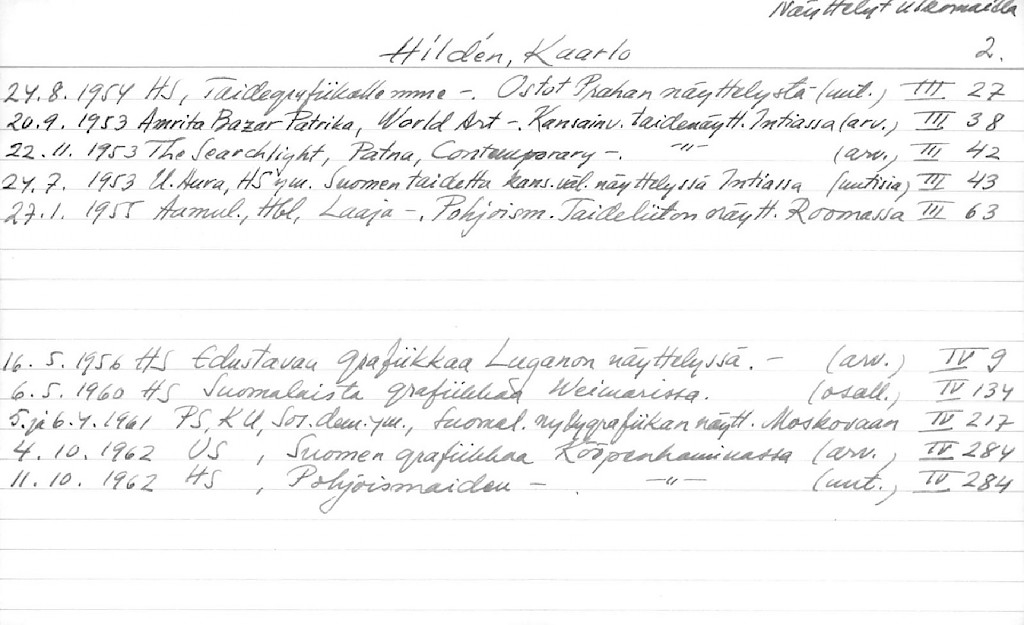 Näyttelyt ulkomailla
Hildén, Kaarlo 2.
24.8. 1954 HS, Taidegrafiikallemme -. Ostot Prahan näyttelystä (uut.) III 27
20.9. 1953 Amrita Bazar Patrika, World Art -. Kansainv. taidenäytt. Intiassa (arv.) III 38
22.11. 1953 The Searchlight, Patna, Contemporary -. -"- (arv.) III 42
24.7. 1953 U. Aura, HS ym. Suomen taidetta kans.väl. näyttelyssä Intiassa (uutisia) III 43
27.1. 1955 Aamul., Hbl, Laaja -. Pohjoism. Taideliiton näytt. Roomassa III 63
16.5. 1956 HS Edustavan grafiikkaa Luganon näyttelyssä. - (arv.) IV 9
6.5. 1960 HS Suomalaista grafiikkaa Weimarissa. (osall.) IV 134
5. ja 6.4. 1961 PS, KU, Sos.dem. ym., Suomal. nykygrafiikan näytt. Moskovaan IV 217
4.10. 1962 US, Suomen grafiikkaa Kööpenhaminassa (arv.) IV 284
11.10. 1962 HS, Pohjoismaiden -. -"- (uut.) IV 284